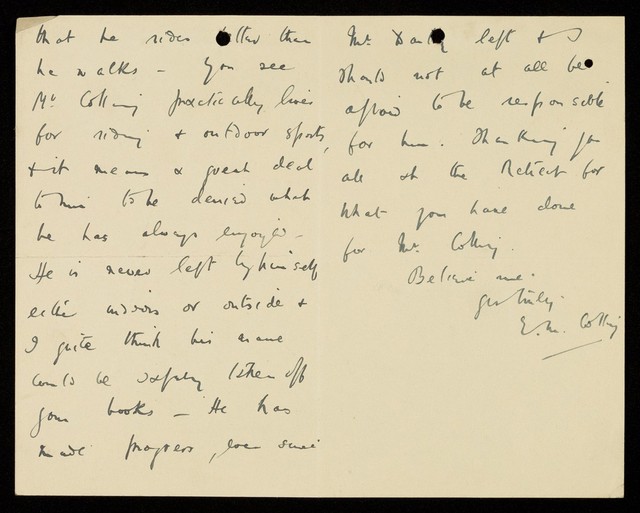 that he rides better than
he walks – You see
Mr Colling practically lives
for riding & outdoor sports,
& it means a great deal
to him to be denied what
he has always enjoyed –
He is never left by himself
either indoors or outside &
I quite think his name
could be safely taken off
your books – He has
made progress, even since
Mr. left & I
should not at all be
afraid to be responsible
for him. Thanking you
all at the Retreat for
what you have done
for Mr. Colling.
Believe me.
yrs truly.
E.M. Colling